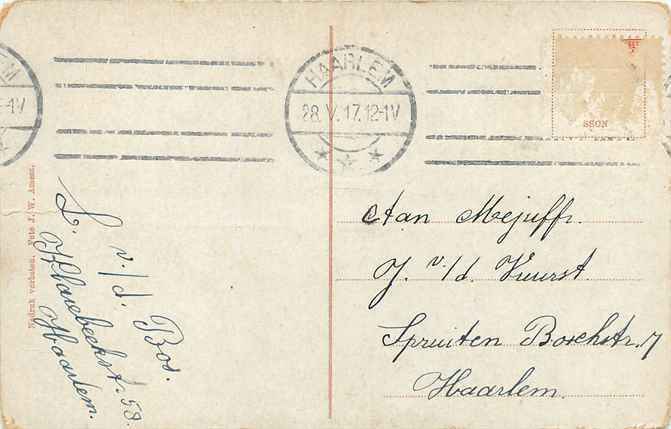 HAARLEM
28.V.17.12-1V
EM
-1V
SSON
Nadruk verboten. Foto J. W. Amest.
L. v/d. Bos.
58.
Haarlem.
Aan Mejuffr.
J. v/d. Vuurst
Spruiten Boschstr. 7
Haarlem.